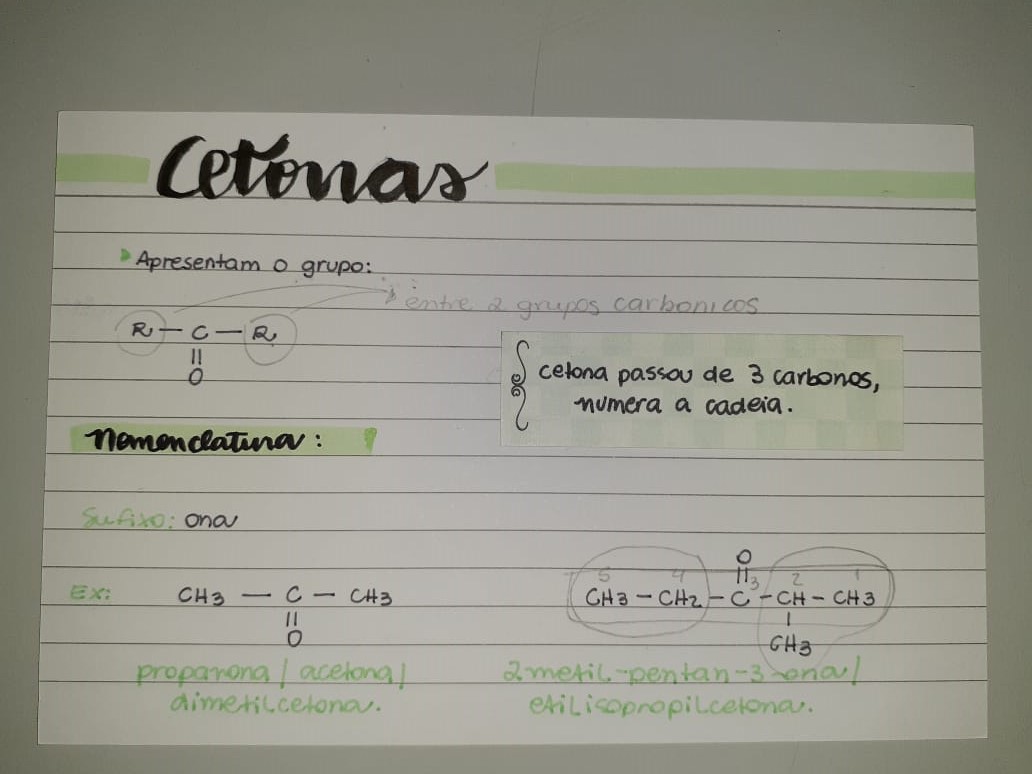 Cetonas
Apresentam o grupo:
entre 2 grupos carbonicos
R — C — R
||
O
cetona passou de 3 carbonos,
numera a cadeia.
nomenclatura:
Sufixo: ona
Ex:
CH3 — C — CH3
||
O
propanona / acetona /
dimetilcetona.
O
||
5 4 3 2 1
CH3 — CH2 — C — CH — CH3
|
CH3
2metil-pentan-3-ona /
etilisopropilcetona.